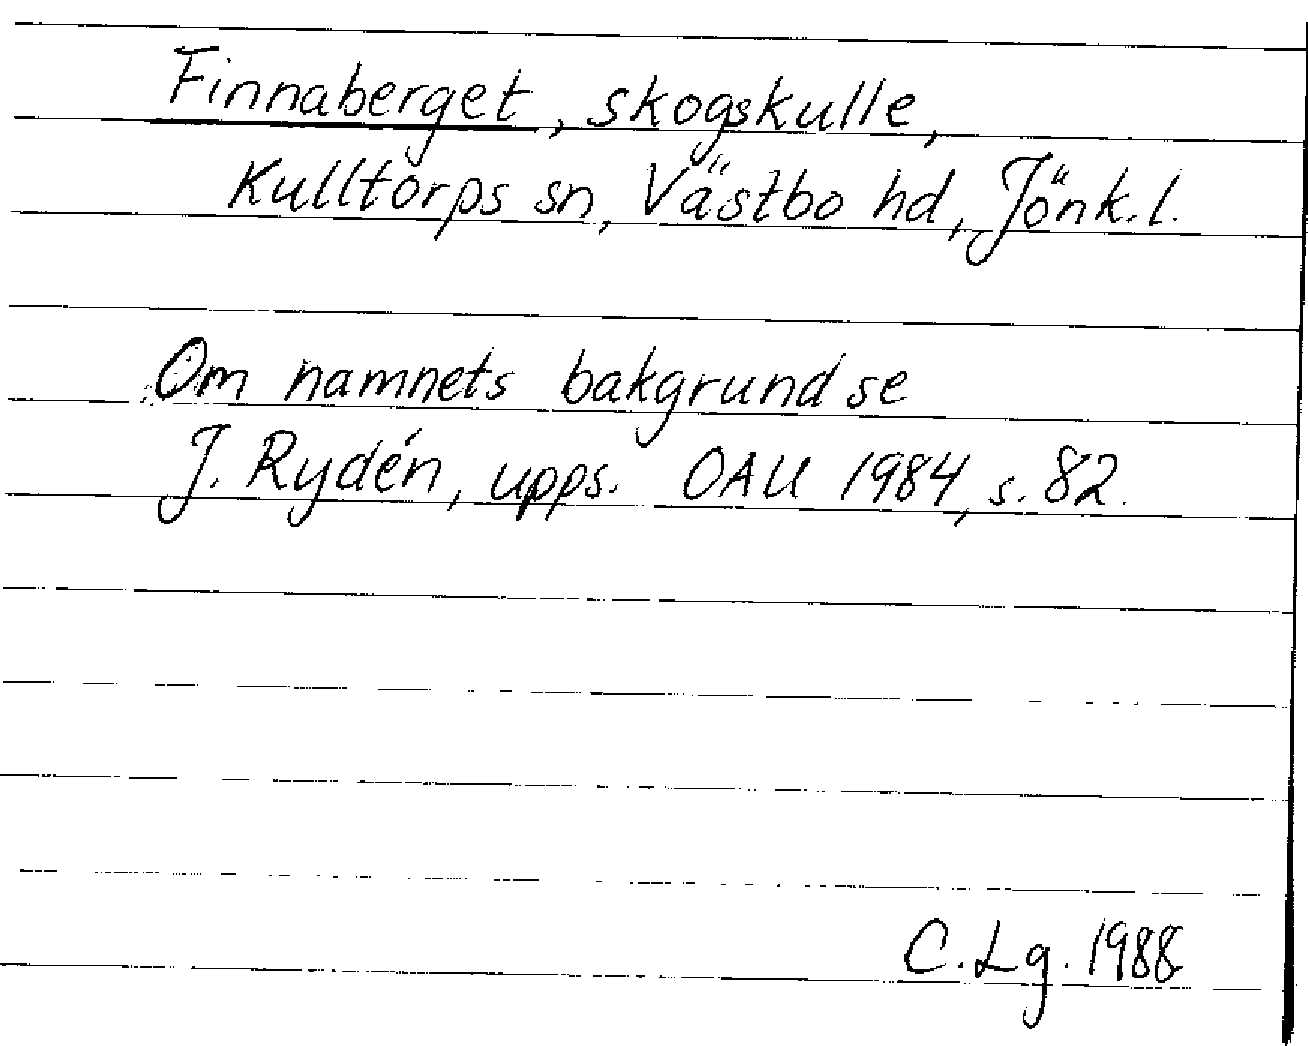 Finnaberget, skogskulle,
Kulltorps sn, Västbo hd, Jönk.l.
Om namnets bakgrund se
J. Rydén, upps. OAU 1984, s. 82.
C.Lg. 1988